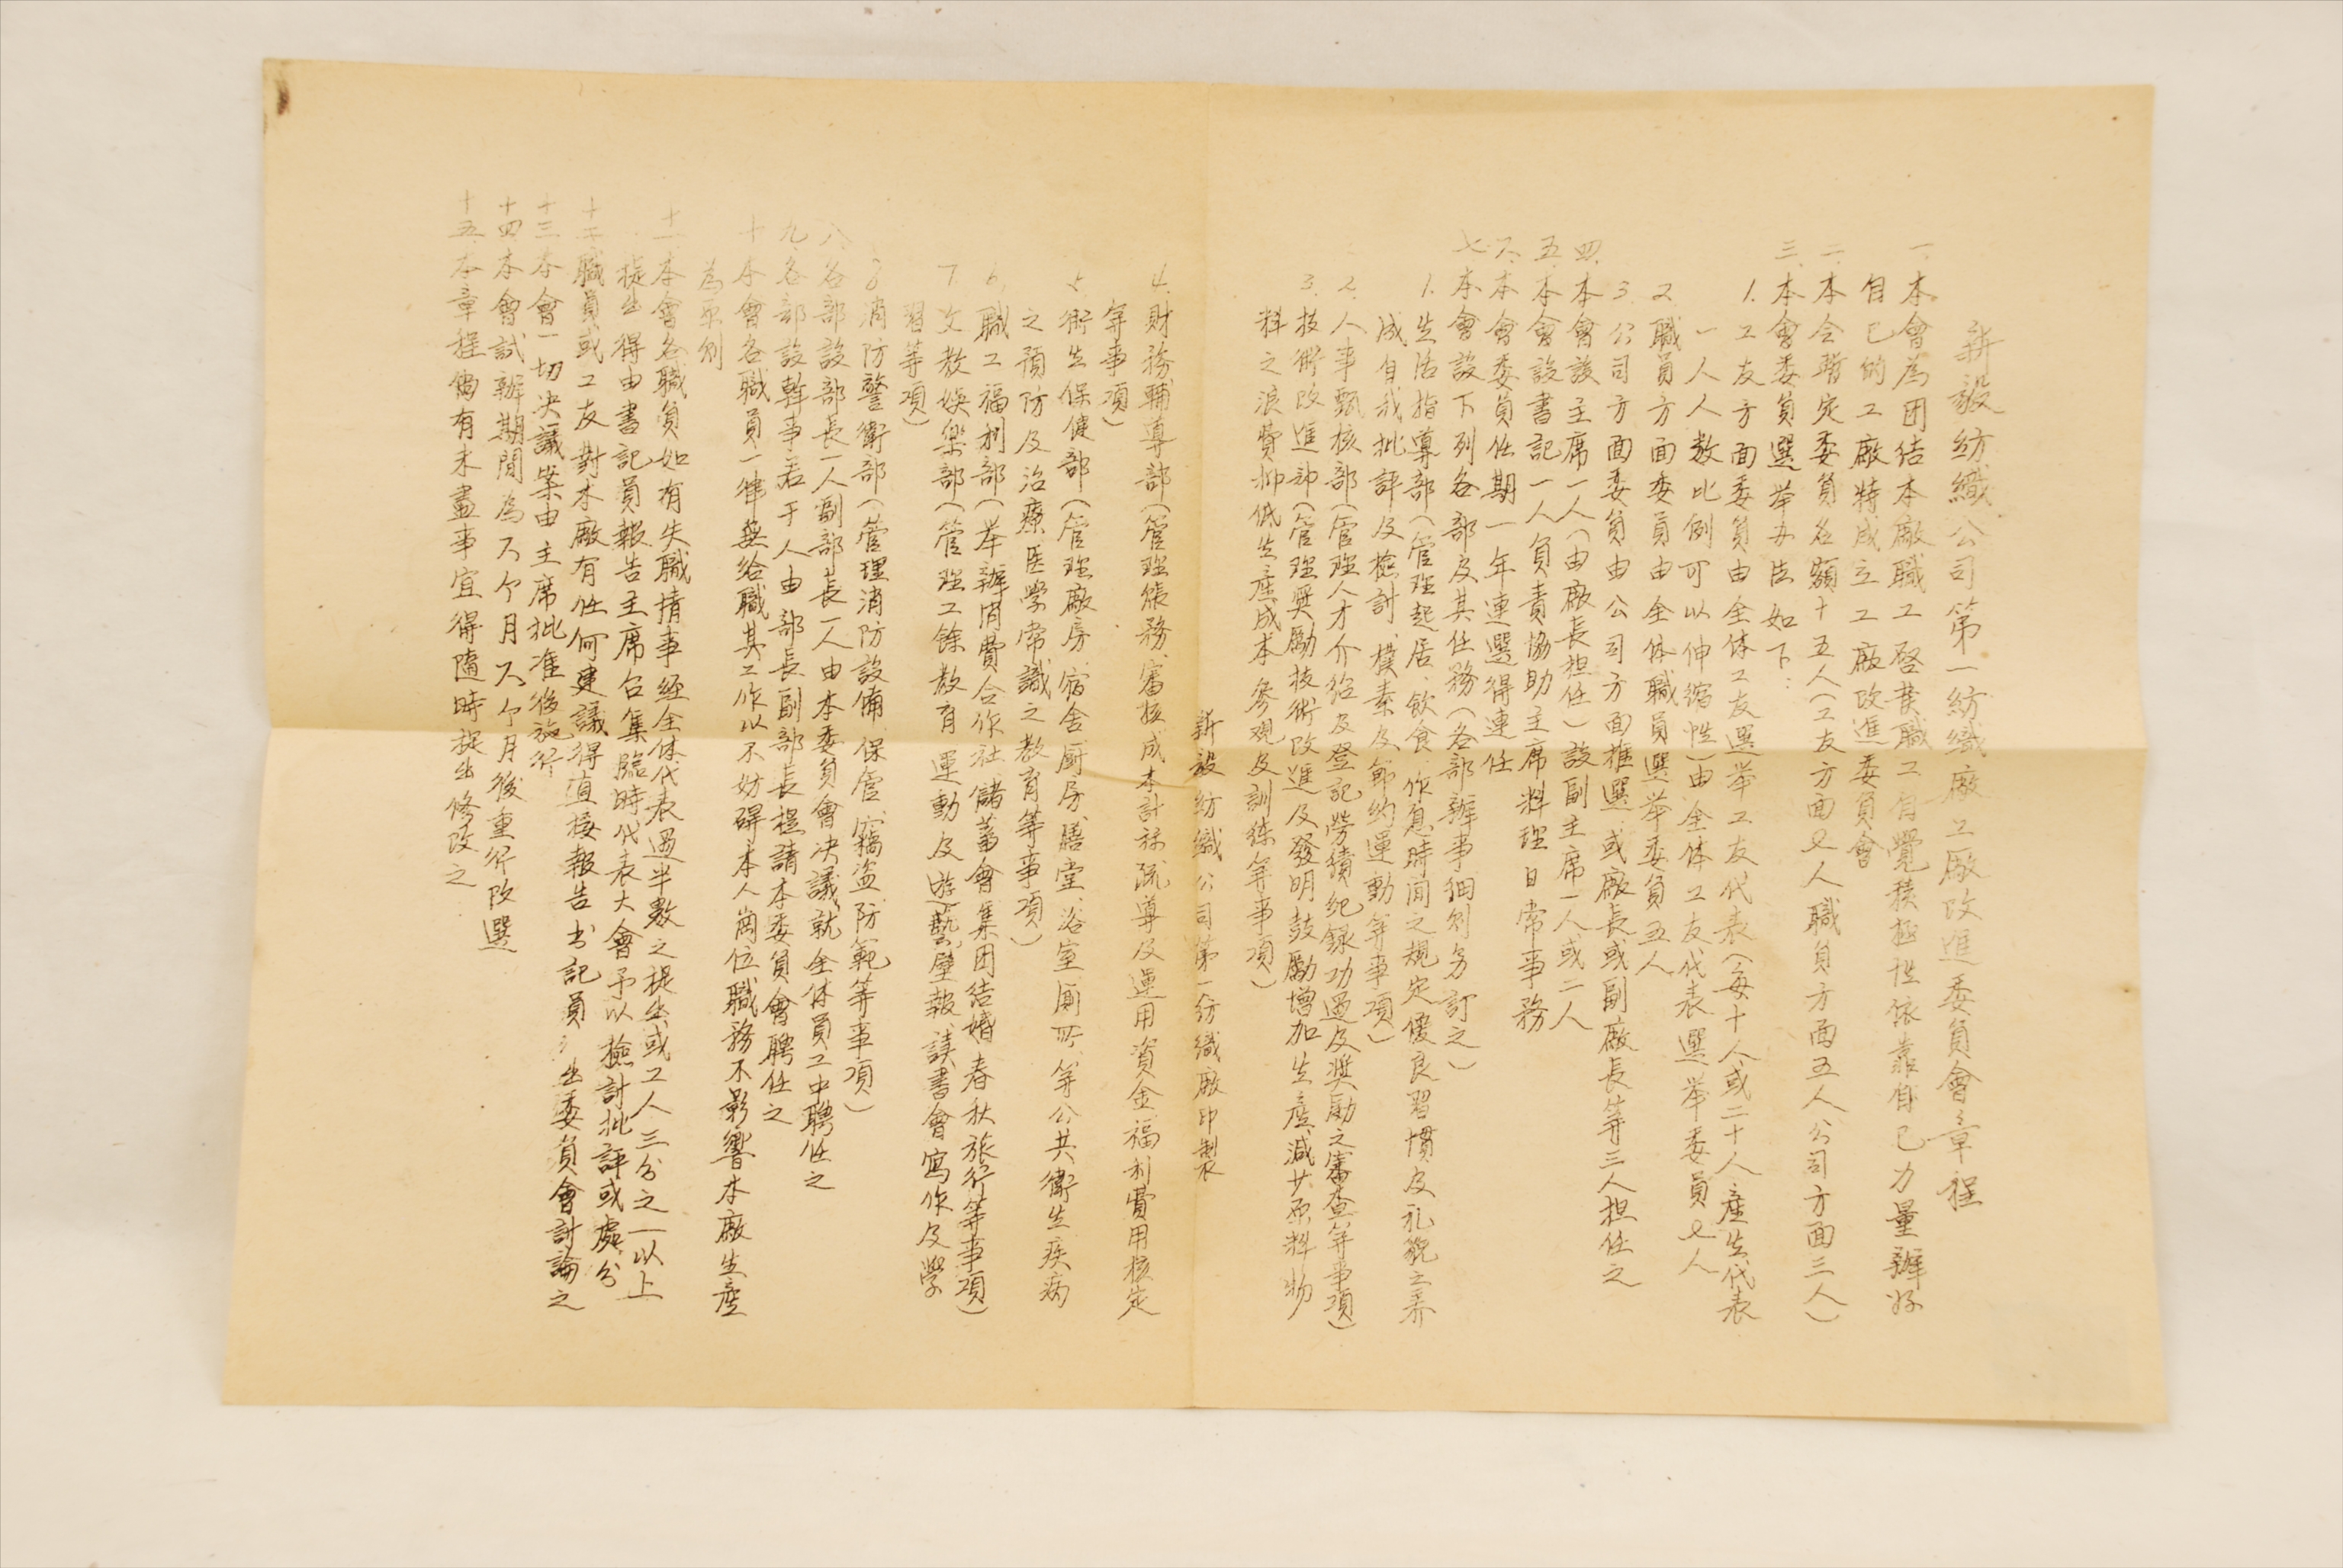 新毅紡織公司第一紡織廠工廠改進委員會章程
一、本會為团結本廠職工啓發職工自覺積極性依靠自己力量辦好
自己的工廠特成立工廠改進委員會
二、本会暫定委員名額十五人(工友方面七人職員方面五人公司方面三人)
三、本會委員選举办法如下:
1. 工友方面委員由全体工友選举工友代表(每十人或二十人產生代表
一人人数比例可以伸缩性)由全体工友代表選举委員七人
2. 職員方面委員由全体職員選举委員五人
3. 公司方面委員由公司方面推選或廠長或副廠長等三人担任之
四、本會設主席一人(由廠長担任)設副主席一人或二人
五、本會設書記一人負責協助主席料理日常事務
六、本會委員任期一年連選得連任
七、本會設下列各部及其任務(各部辦事細則另訂之)
1. 生活指導部(管理起居、飲食、作息時间之規定優良習慣及礼貌之养
成自我批評及檢討、樸素及節約運動等事項)
2. 人事甄核部(管理人才介紹及登記勞績纪録功過及奖勵之審查等事項)
3. 技術改進部(管理奬勵技術改進及發明鼓勵增加生產減少原料物
料之浪費抑低生產成本參观及訓练等事項)
新毅紡織公司第一紡織廠印製
4. 財務輔導部(管理賬務、審核成本計祘疏導及運用資金福利費用核定
等事項)
5. 衛生保健部(管理廠房、宿舍厨房、膳堂、浴室厠所、等公共衛生疾病
之預防及治療医學常識之教育等事項)
6. 職工福利部(举辦消費合作社、儲蓄會集团结婚春秋旅行等事項)
7. 文教娛樂部(管理工餘教育運動及遊藝、壁報、讀書會寫作及學
習等項)
8. 消防警衛部(管理消防設備、保管、竊盗、防範等事項)
八、各部設部長一人副部長一人由本委員會决議就全体員工中聘任之
九、各部設幹事若干人由部長副部長提請本委員會聘任之
十、本會各職員一律無給職其工作以不妨碍本人崗位職務不影響本廠生產
為原则
十一、本會各職員如有失職情事経全体代表過半数之提出或工人三分之一以上
提出得由書記員報告主席召集臨時代表大會予以檢討批評或處分
十二、職員或工友對本廠有任何建議得直接報告书記員出委員會討論之
十三、本會一切决議案由主席批准後施行
十四、本會試辦期間為六个月六个月後重行改選
十五、本章程倘有未盡事宜得隨時提出修改之